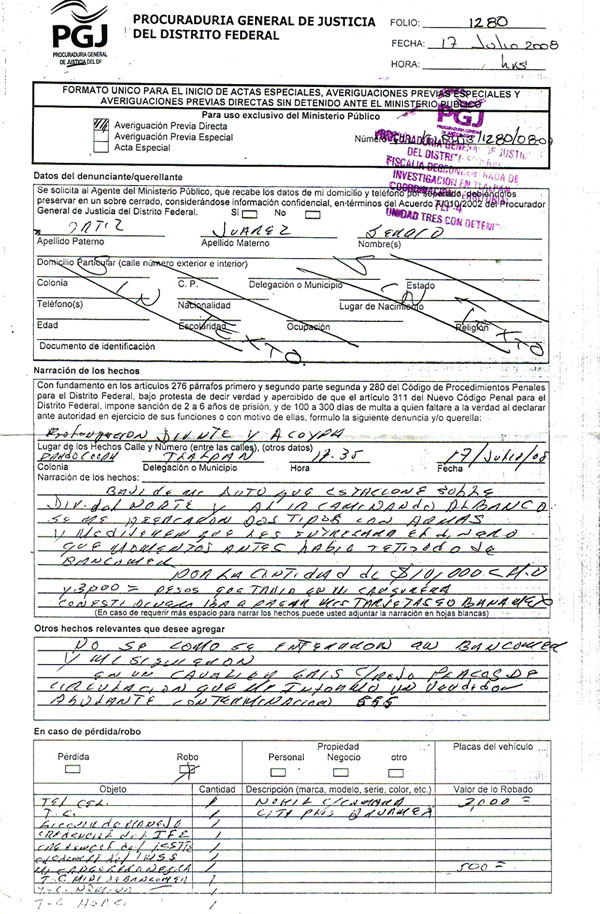 PGJ
PROCURADURIA GENERAL
DE JUSTICIA DEL DF
PROCURADURIA GENERAL DE JUSTICIA
DEL DISTRITO FEDERAL
FOLIO: 1280
FECHA: 17 Julio 2008
HORA: hrs
FORMATO UNICO PARA EL INICIO DE ACTAS ESPECIALES, AVERIGUACIONES PREVIAS ESPECIALES Y
AVERIGUACIONES PREVIAS DIRECTAS SIN DETENIDO ANTE EL MINISTERIO PUBLICO
Para uso exclusivo del Ministerio Público
Averiguación Previa Directa
Averiguación Previa Especial
Acta Especial
Número /1280/08-0
PGJ
PROCURADURIA GENERAL DE JUSTICIA
DEL DISTRITO
FISCALIA DESCONCENTRADA DE
INVESTIGACION EN TLALPAN
COORDINACION TERRITORIAL
UNIDAD TRES CON DETENIDO
Datos del denunciante/querellante
Se solicita al Agente del Ministerio Público, que recabe los datos de mi domicilio y teléfono por separado, debiéndolos
preservar en un sobre cerrado, considerándose información confidencial, en términos del Acuerdo A/010/2002 del Procurador
General de Justicia del Distrito Federal. Sí No
ORTIZ JUAREZ SERGIO
Apellido Paterno Apellido Materno Nombre(s)
Domicilio Particular (calle número exterior e interior)
Colonia C. P. Delegación o Municipio Estado
Teléfono(s) Nacionalidad Lugar de Nacimiento
Edad Escolaridad Ocupación Religión
Documento de identificación
SIN TEXTO
SIN TEXTO
Narración de los hechos
Con fundamento en los artículos 276 párrafos primero y segundo parte segunda y 280 del Código de Procedimientos Penales
para el Distrito Federal, bajo protesta de decir verdad y apercibido de que el artículo 311 del Nuevo Código Penal para el
Distrito Federal, impone sanción de 2 a 6 años de prisión, y de 100 a 300 días de multa a quien faltare a la verdad al declarar
ante autoridad en ejercicio de sus funciones o con motivo de ellas, formulo la siguiente denuncia y/o querella:
Prolongacion Y ACOXPA
Lugar de los Hechos Calle y Número (entre las calles), (otros datos)
TLALPAN 17.35 17/Julio/08
Colonia Delegación o Municipio Hora Fecha
Narración de los hechos:
BAJE de mi AUTO QUE ESTACIONE SOBRE
DIV. del NORTE Y AL IR CAMINANDO AL BANCO
SE ME ACERCARON DOS TIPOS CON ARMAS
Y ME DIJERON QUE LES ENTREGARA EL DINERO
QUE MOMENTOS ANTES HABIA RETIRADO de
BANCOMER
POR LA CANTIDAD de $10,000
Y 3,000 = PESOS QUE TRAIA EN MI CANGURERA
CON ESTE DINERO IBA A PAGAR MIS TARJETAS BANAMEX
(En caso de requerir más espacio para narrar los hechos puede usted adjuntar la narración en hojas blancas)
Otros hechos relevantes que desee agregar
NO SE COMO SE ENTERARON EN BANCOMER
Y ME SIGUIERON
EN UN CAVALIER GRIS PLACAS DE
CIRCULACION QUE ME INFORMO UN VENDEDOR
AMBULANTE CON TERMINACION 555
En caso de pérdida/robo
Pérdida Robo
Propiedad
Personal Negocio otro
Placas del vehículo
Objeto Cantidad Descripción (marca, modelo, serie, color, etc.) Valor de lo Robado
TEL CEL. 1 NOKIA C/CAMARA 2,000 =
T.C. 1 CITI BANAMEX
LICENCIA MANEJO 1
CREDENCIAL del IFE 1
CREDENCIAL del 1
CREDENCIAL del IMSS 1
CANGURERA NEGRA 1 500 =
T.C. BANCOMER 1
T.C. 1
T-C HSBC 1